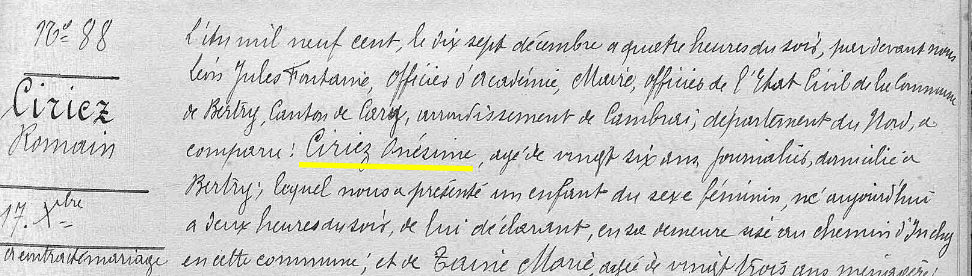 N° 88
Ciriez
Romain
17. Xbre
a contracté mariage
L'an mil neuf cent, le dix sept décembre a quatre heures du soir, par devant nous
Jules Fontaine, Officier d'Académie, Maire, officier de l'Etat Civil de la Commune
de Bertry, Canton de Clary, arrondissement de Cambrai, département du Nord, a
comparu: Ciriez Onésime, agé de vingt six ans, journalier, domicilié a
Bertry; lequel nous a présenté un enfant du sexe féminin, né aujourd'hui
a deux heures du soir, de lui déclarant, en sa demeure sise au chemin d'Inchy
en cette commune; et de Taine Marie, agée de vingt trois ans, ménagère;